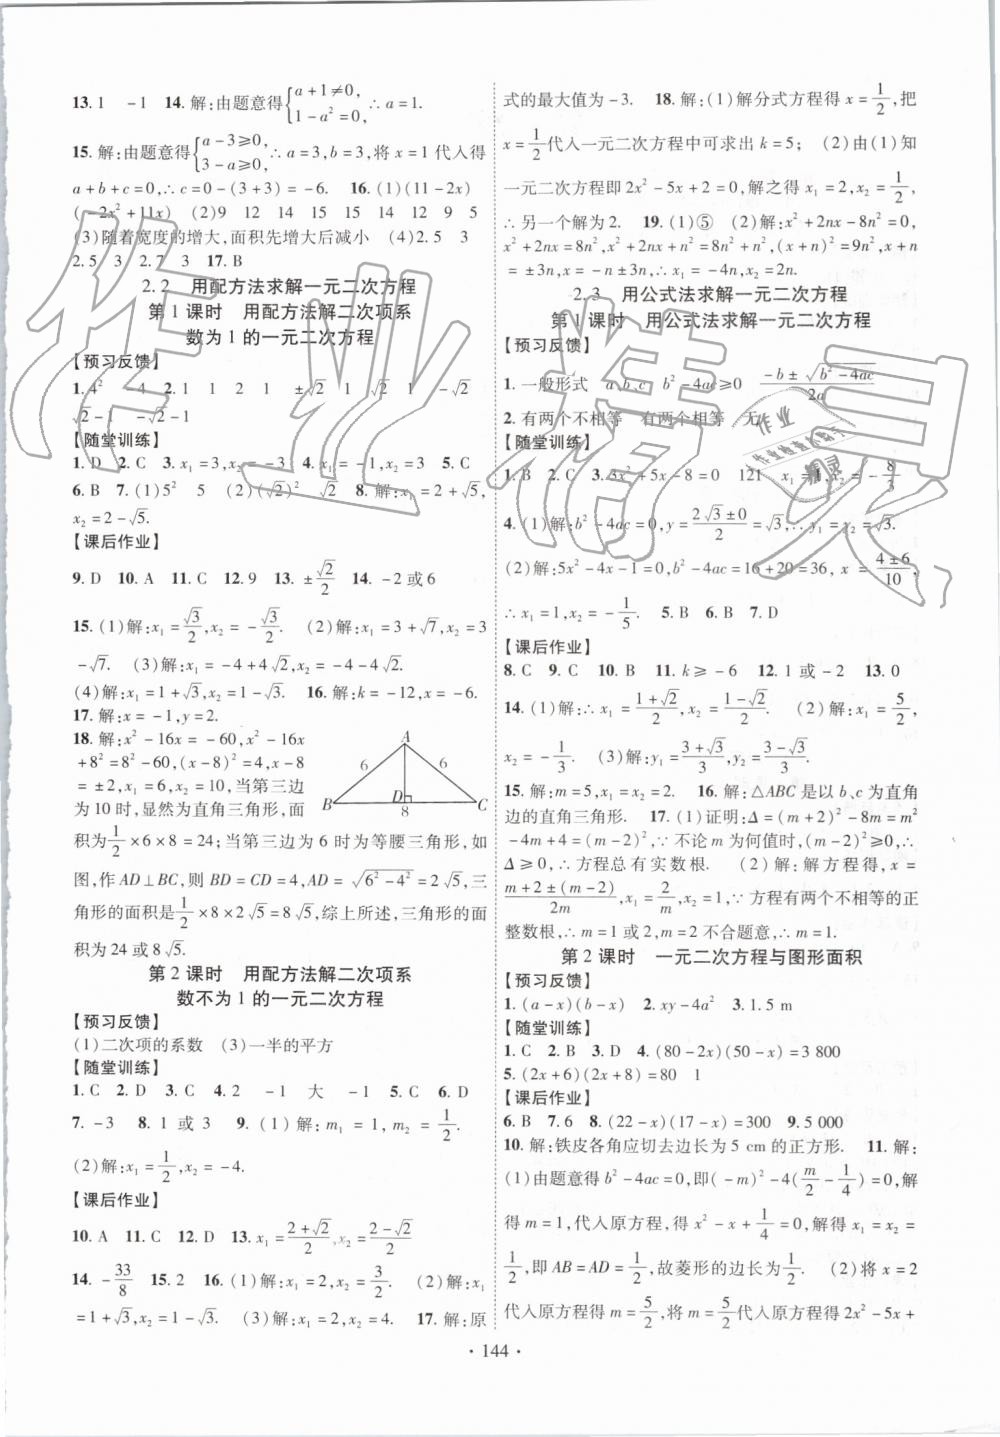 13. 1　-1　14. 解:由题意得{a+1≠0, 1-a²=0, ∴a=1.
15. 解:由题意得{a-3≥0, 3-a≥0, ∴a=3,b=3,将 x=1 代入得
a+b+c=0,∴c=0-(3+3)=-6.　16. (1)(11-2x)
(-2x²+11x)　(2)9　12　14　15　15　14　12　9　5
(3)随着宽度的增大,面积先增大后减小　(4)2.5　3
2.5　3　2.7　3　17. B
2.2　用配方法求解一元二次方程
第 1 课时　用配方法解二次项系
数为 1 的一元二次方程
【预习反馈】
1. 4²　4　2. 1　1　2　1　±√2　1　√2　1　-√2
√2-1　-√2-1
【随堂训练】
1. D　2. C　3. x₁=3,x₂=-3　4. x₁=-1,x₂=3　5. C
6. B　7. (1)5²　5　(2)(√2)²　√2　8. 解:x₁=2+√5,
x₂=2-√5.
【课后作业】
9. D　10. A　11. C　12. 9　13. ±√2/2　14. -2或6
15. (1)解:x₁=√3/2,x₂=-√3/2.　(2)解:x₁=3+√7,x₂=3
-√7.　(3)解:x₁=-4+4√3,x₂=-4-4√3.
(4)解:x₁=1+√3,x₂=1-√3.　16. 解:k=-12,x=-6.
17. 解:x=-1,y=2.
18. 解:x²-16x=-60,x²-16x
+8²=8²-60,(x-8)²=4,x-8
=±2,x₁=6,x₂=10,当第三边
为 10 时,显然为直角三角形,面
积为1/2×6×8=24;当第三边为 6 时为等腰三角形,如
图,作 AD⊥BC,则 BD=CD=4,AD=√(6²-4²)=2√5,三
角形的面积是1/2×8×2√5=8√5,综上所述,三角形的面
积为 24 或8√5.
A
6　6
B　D　8　C
第 2 课时　用配方法解二次项系
数不为 1 的一元二次方程
【预习反馈】
(1)二次项的系数　(3)一半的平方
【随堂训练】
1. C　2. D　3. C　4. 2　-1　大　-1　5. C　6. D
7. -3　8. 1 或 3　9. (1)解:m₁=1,m₂=1/2.
(2)解:x₁=1/2,x₂=-4.
【课后作业】
10. A　11. C　12. D　13. x₁=(2+√2)/2,x₂=(2-√2)/2
14. -33/8　15. 2　16. (1)解:x₁=2,x₂=3/2.　(2)解:x₁
=1+√3,x₂=1-√3.　(3)解:x₁=2,x₂=4.　17. 解:原
式的最大值为-3.　18. 解:(1)解分式方程得 x=1/2,把
x=1/2代入一元二次方程中可求出 k=5;　(2)由(1)知
一元二次方程即 2x²-5x+2=0,解之得 x₁=2,x₂=1/2,
∴另一个解为 2.　19. (1)⑤　(2)解:x²+2nx-8n²=0,
x²+2nx=8n²,x²+2nx+n²=8n²+n²,(x+n)²=9n²,x+n
=±3n,x=-n±3n,∴x₁=-4n,x₂=2n.
2.3　用公式法求解一元二次方程
第 1 课时　用公式法求解一元二次方程
【预习反馈】
1. 一般形式　a、b、c　b²-4ac≥0　(-b±√(b²-4ac))/2a
2. 有两个不相等　有两个相等　无
【随堂训练】
1. B　2. C　3. 3x²+5x-8=0　121　x₁=1,x₂=-8/3
4. (1)解:b²-4ac=0,y=(2√3±0)/2=√3,∴y₁=y₂=√3.
(2)解:5x²-4x-1=0,b²-4ac=16+20=36,x=(4±6)/10,
∴x₁=1,x₂=-1/5.　5. B　6. B　7. D
【课后作业】
8. C　9. C　10. B　11. k≥-6　12. 1 或-2　13. 0
14. (1)解:∴x₁=(1+√2)/2,x₂=(1-√2)/2.　(2)解:x₁=5/2,
x₂=-1/3.　(3)解:y₁=(3+√3)/3,y₂=(3-√3)/3.
15. 解:m=5,x₁=x₂=2.　16. 解:△ABC 是以 b、c 为直角
边的直角三角形.　17. (1)证明:Δ=(m+2)²-8m=m²
-4m+4=(m-2)²,∵不论 m 为何值时,(m-2)²≥0,∴
Δ≥0,∴方程总有实数根.　(2)解:解方程得,x=
(m+2±(m-2))/2m,x₁=2/m,x₂=1,∵方程有两个不相等的正
整数根,∴m=1 或 2,m=2 不合题意,∴m=1.
第 2 课时　一元二次方程与图形面积
【预习反馈】
1. (a-x)(b-x)　2. xy-4a²　3. 1.5 m
【随堂训练】
1. C　2. B　3. D　4. (80-2x)(50-x)=3 800
5. (2x+6)(2x+8)=80　1
【课后作业】
6. B　7. 6　8. (22-x)(17-x)=300　9. 5 000
10. 解:铁皮各角应切去边长为 5 cm 的正方形.　11. 解:
(1)由题意得 b²-4ac=0,即(-m)²-4(m/2-1/4)=0,解
得 m=1,代入原方程,得 x²-x+1/4=0,解得 x₁=x₂=
1/2,即 AB=AD=1/2,故菱形的边长为1/2.　(2)将 x=2
代入原方程得 m=5/2,将 m=5/2代入原方程得 2x²-5x+
· 144 ·
作业精灵